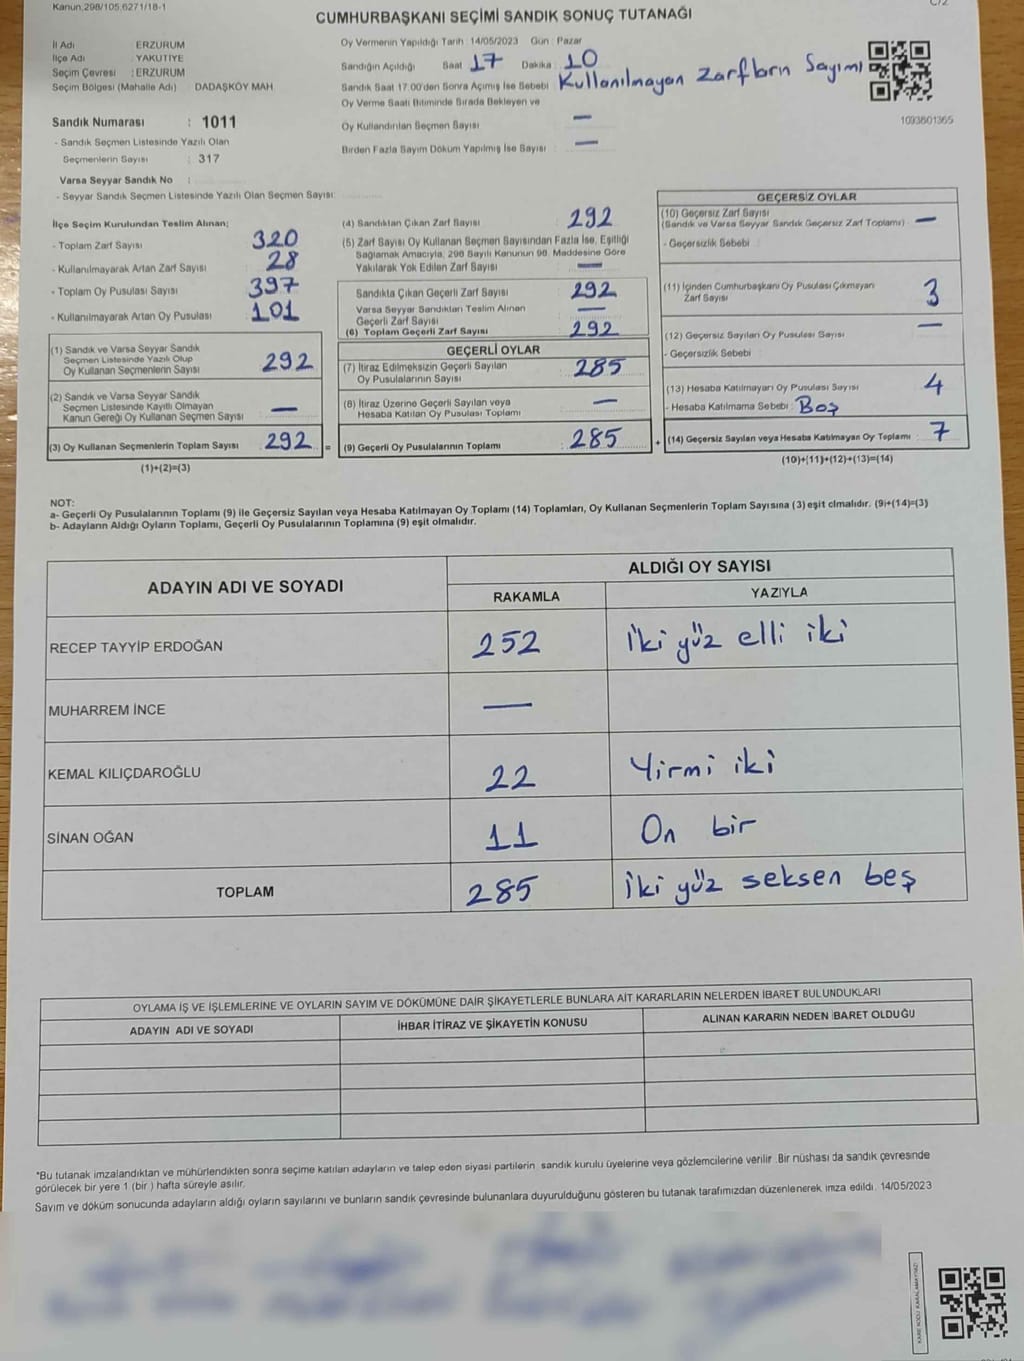 Kanun,298/105,6271/18-1
CUMHURBAŞKANI SEÇİMİ SANDIK SONUÇ TUTANAĞI
İl Adı : ERZURUM
İlçe Adı : YAKUTİYE
Seçim Çevresi : ERZURUM
Seçim Bölgesi (Mahalle Adı) DADAŞKÖY MAH
Sandık Numarası : 1011
- Sandık Seçmen Listesinde Yazılı Olan
Seçmenlerin Sayısı : 317
Varsa Seyyar Sandık No :
- Seyyar Sandık Seçmen Listesinde Yazılı Olan Seçmen Sayısı:
Oy Vermenin Yapıldığı Tarih : 14/05/2023 Gün : Pazar
Sandığın Açıldığı Saat 17 Dakika : 10
Sandık Saat 17.00'den Sonra Açımış İse Sebebi Kullanılmayan Zarfların Sayımı
Oy Verme Saati Bitiminde Sırada Bekleyen ve
Oy Kullandırılan Seçmen Sayısı —
Birden Fazla Sayım Döküm Yapılmış İse Sayısı —
1093601365
İlçe Seçim Kurulundan Teslim Alınan;
- Toplam Zarf Sayısı 320
- Kullanılmayarak Artan Zarf Sayısı 28
- Toplam Oy Pusulası Sayısı 397
- Kullanılmayarak Artan Oy Pusulası 101
(1) Sandık ve Varsa Seyyar Sandık
Seçmen Listesinde Yazılı Olup
Oy Kullanan Seçmenlerin Sayısı 292
(2) Sandık ve Varsa Seyyar Sandık
Seçmen Listesinde Kayıtlı Olmayan
Kanun Gereği Oy Kullanan Seçmen Sayısı —
(3) Oy Kullanan Seçmenlerin Toplam Sayısı 292 =
(1)+(2)=(3)
(4) Sandıktan Çıkan Zarf Sayısı 292
(5) Zarf Sayısı Oy Kullanan Seçmen Sayısından Fazla İse, Eşitliği
Sağlamak Amacıyla, 298 Sayılı Kanunun 98. Maddesine Göre
Yakılarak Yok Edilen Zarf Sayısı —
Sandıkta Çıkan Geçerli Zarf Sayısı 292
Varsa Seyyar Sandıktan Teslim Alınan
Geçerli Zarf Sayısı —
(6) Toplam Geçerli Zarf Sayısı 292
GEÇERLİ OYLAR
(7) İtiraz Edilmeksizin Geçerli Sayılan
Oy Pusulalarının Sayısı 285
(8) İtiraz Üzerine Geçerli Sayılan veya
Hesaba Katılan Oy Pusulası Toplamı —
(9) Geçerli Oy Pusulalarının Toplamı 285 +
GEÇERSİZ OYLAR
(10) Geçersiz Zarf Sayısı
(Sandık ve Varsa Seyyar Sandık Geçersiz Zarf Toplamı) —
- Geçersizlik Sebebi :
(11) İçinden Cumhurbaşkanı Oy Pusulası Çıkmayan
Zarf Sayısı 3
(12) Geçersiz Sayılan Oy Pusulası Sayısı —
- Geçersizlik Sebebi :
(13) Hesaba Katılmayan Oy Pusulası Sayısı 4
- Hesaba Katılmama Sebebi : Boş
(14) Geçersiz Sayılan veya Hesaba Katılmayan Oy Toplamı 7
(10)+(11)+(12)+(13)=(14)
NOT:
a- Geçerli Oy Pusulalarının Toplamı (9) ile Geçersiz Sayılan veya Hesaba Katılmayan Oy Toplamı (14) Toplamları, Oy Kullanan Seçmenlerin Toplam Sayısına (3) eşit olmalıdır. (9)+(14)=(3)
b- Adayların Aldığı Oyların Toplamı, Geçerli Oy Pusulalarının Toplamına (9) eşit olmalıdır.
ADAYIN ADI VE SOYADI ALDIĞI OY SAYISI
RAKAMLA YAZIYLA
RECEP TAYYİP ERDOĞAN 252 İki yüz elli iki
MUHARREM İNCE —
KEMAL KILIÇDAROĞLU 22 Yirmi iki
SİNAN OĞAN 11 On bir
TOPLAM 285 İki yüz seksen beş
OYLAMA İŞ VE İŞLEMLERİNE VE OYLARIN SAYIM VE DÖKÜMÜNE DAİR ŞİKAYETLERLE BUNLARA AİT KARARLARIN NELERDEN İBARET BULUNDUKLARI
ADAYIN ADI VE SOYADI İHBAR İTİRAZ VE ŞİKAYETİN KONUSU ALINAN KARARIN NEDEN İBARET OLDUĞU
*Bu tutanak imzalandıktan ve mühürlendikten sonra seçime katılan adayların ve talep eden siyasi partilerin sandık kurulu üyelerine veya gözlemcilerine verilir. Bir nüshası da sandık çevresinde
görülecek bir yere 1 (bir) hafta süreyle asılır.
Sayım ve döküm sonucunda adayların aldığı oyların sayılarını ve bunların sandık çevresinde bulunanlara duyurulduğunu gösteren bu tutanak tarafımızdan düzenlenerek imza edildi. 14/05/2023
KARE KODU KARALAMAYINIZ!